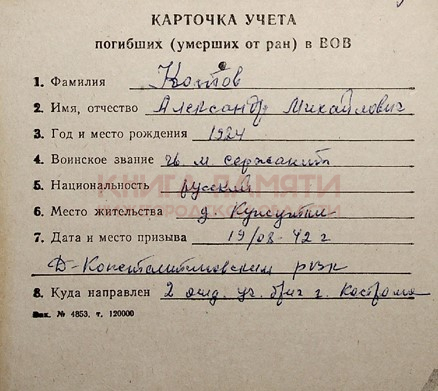 КАРТОЧКА УЧЕТА
погибших (умерших от ран) в ВОВ
1. Фамилия Котов
2. Имя, отчество Александр Михайлович
3. Год и место рождения 1924
4. Воинское звание гв. м. сержант
5. Национальность русский
КНИГА ПАМЯТИ
НИЖЕГОРОДСКОЙ ОБЛАСТИ
6. Место жительства д.
7. Дата и место призыва 19/08-42 г
Д-Константиновским рвк
8. Куда направлен 2 отд. уч. бриг г. Кострома
Зак. № 4853, т. 120000